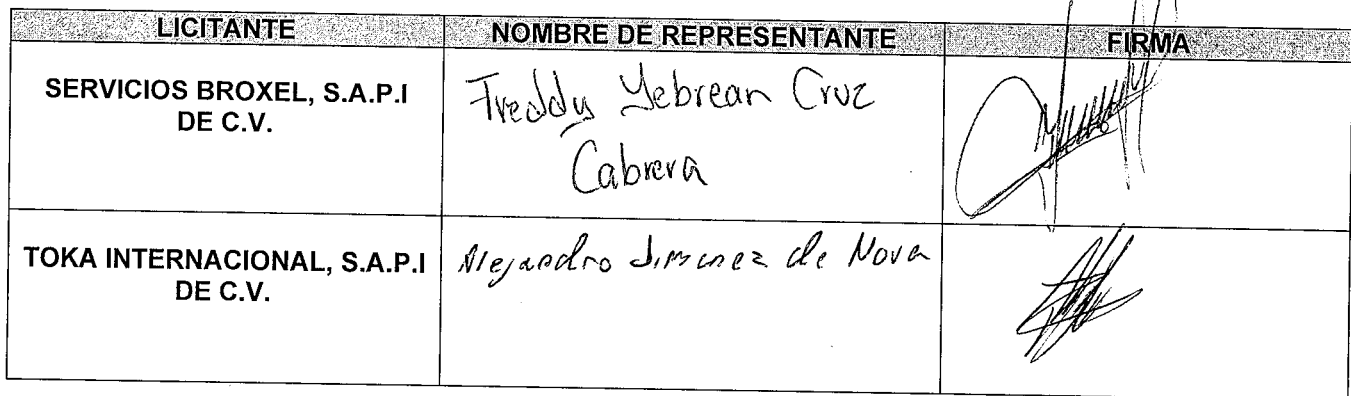 LICITANTE NOMBRE DE REPRESENTANTE FIRMA
SERVICIOS BROXEL, S.A.P.I
DE C.V.
Freddy Yebrean Cruz
Cabrera
TOKA INTERNACIONAL, S.A.P.I
DE C.V.
Alejandro Jimenez de Nova